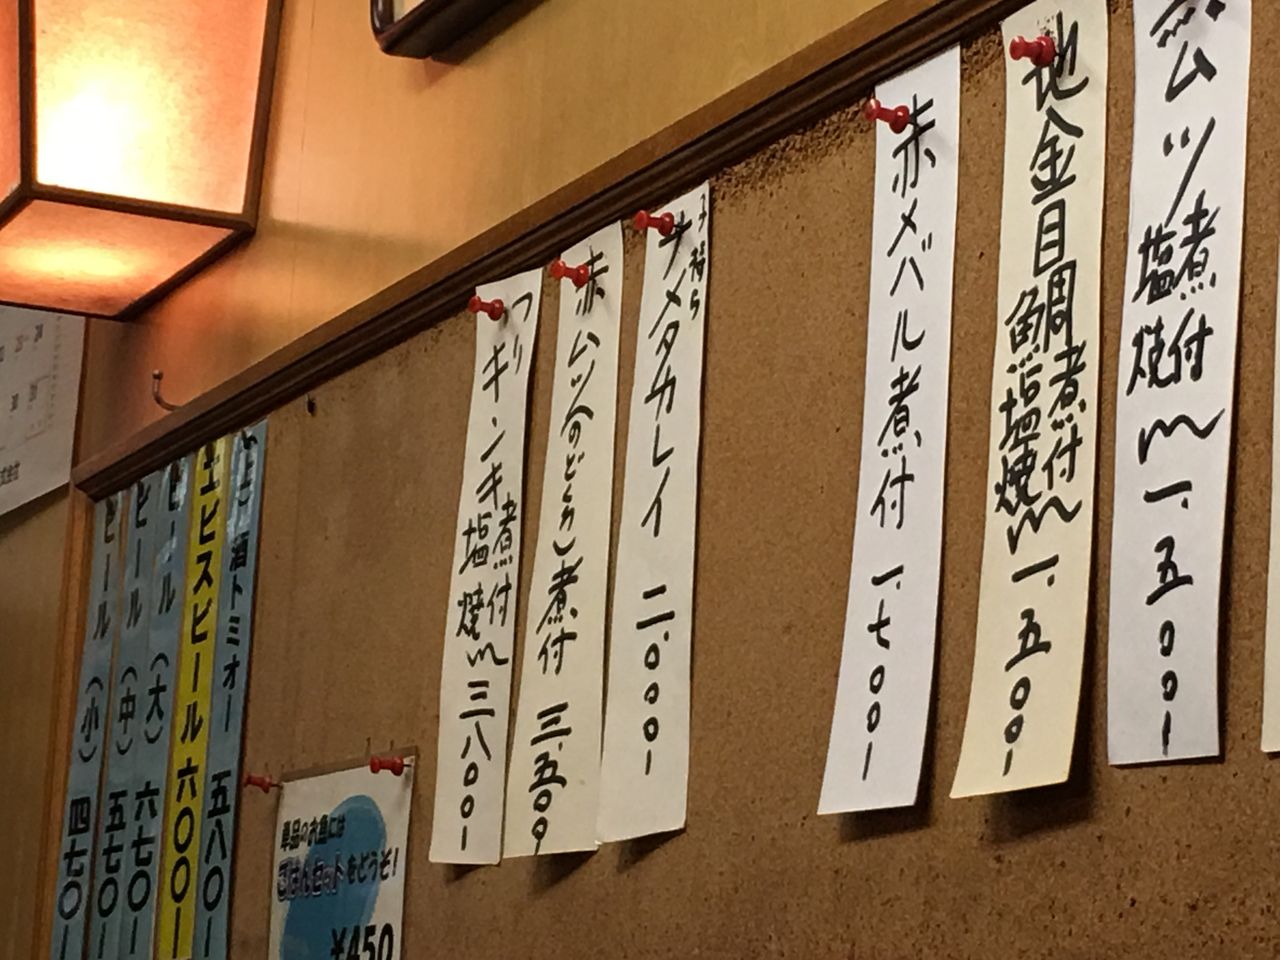 黒ムツ 煮付 塩焼 一.五〇〇ー
地金目鯛 煮付 塩焼 一.五〇〇ー
赤メバル煮付 一.七〇〇ー
子持ち ナメタカレイ 二.〇〇〇ー
赤ムツ(のどくろ)煮付 三.五〇〇
つり キンキ 煮付 塩焼 三八〇〇ー
酒トミオー 五八〇ー
ヱビスビール 六〇〇ー
ビール(大) 六七〇ー
ビール(中) 五七〇ー
ビール(小) 四七〇ー
単品のお魚には
ごはんセットをどうぞ!
¥450
式会社